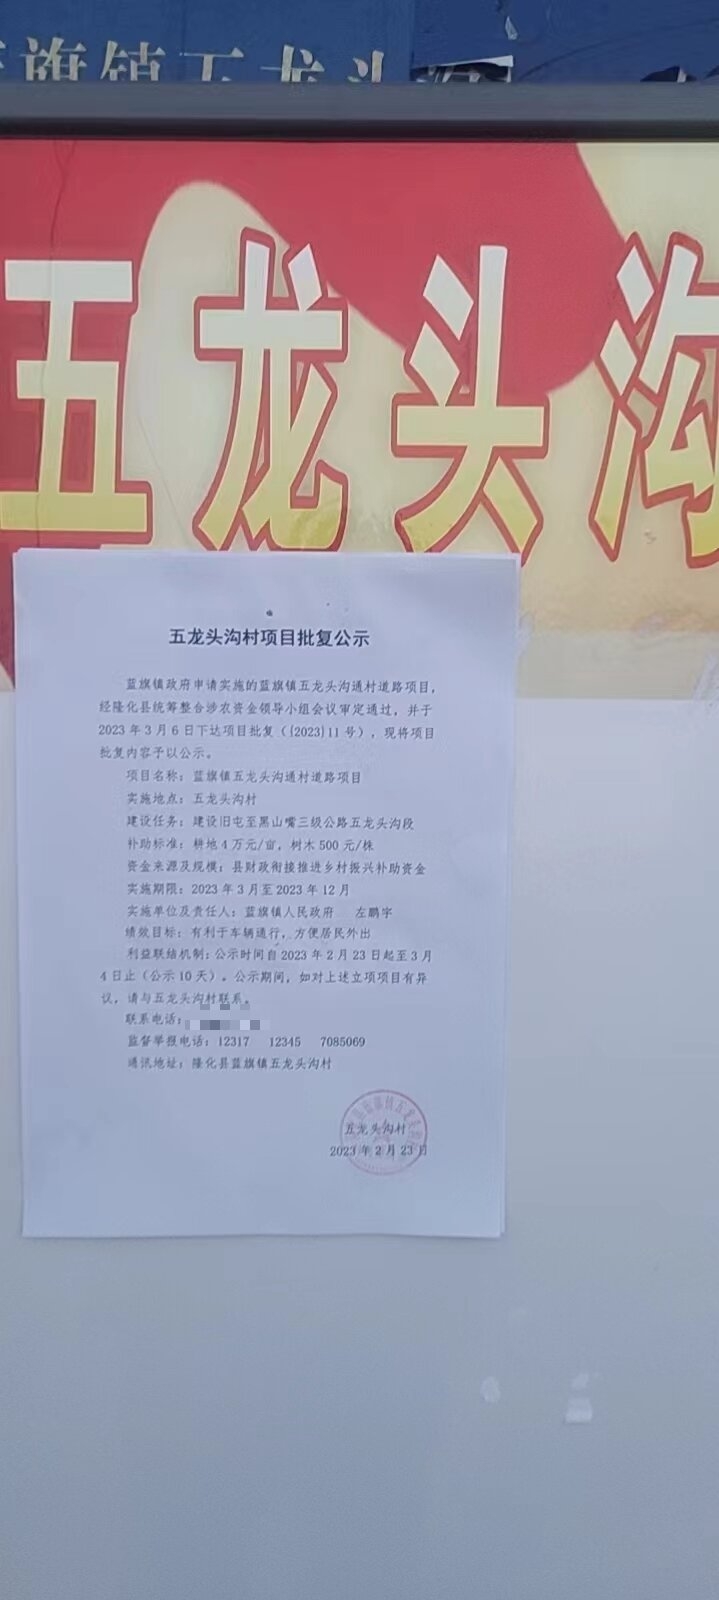 旗镇五龙头沟
五龙头沟
五龙头沟村项目批复公示
蓝旗镇政府申请实施的蓝旗镇五龙头沟通村道路项目，
经隆化县统筹整合涉农资金领导小组会议审定通过，并于
2023年3月6日下达项目批复（{2023}11号），现将项目
批复内容予以公示。
项目名称：蓝旗镇五龙头沟通村道路项目
实施地点：五龙头沟村
建设任务：建设旧屯至黑山嘴三级公路五龙头沟段
补助标准：耕地4万元/亩，树木500元/株
资金来源及规模：县财政衔接推进乡村振兴补助资金
实施期限：2023年3月至2023年12月
实施单位及责任人：蓝旗镇人民政府 左鹏宇
绩效目标：有利于车辆通行，方便居民外出
利益联结机制：公示时间自2023年2月23日起至3月
4日止（公示10天）。公示期间，如对上述立项项目有异
议，请与五龙头沟村联系。
联系电话：
监督举报电话：12317 12345 7085069
通讯地址：隆化县蓝旗镇五龙头沟村
五龙头沟村
2023年2月23日